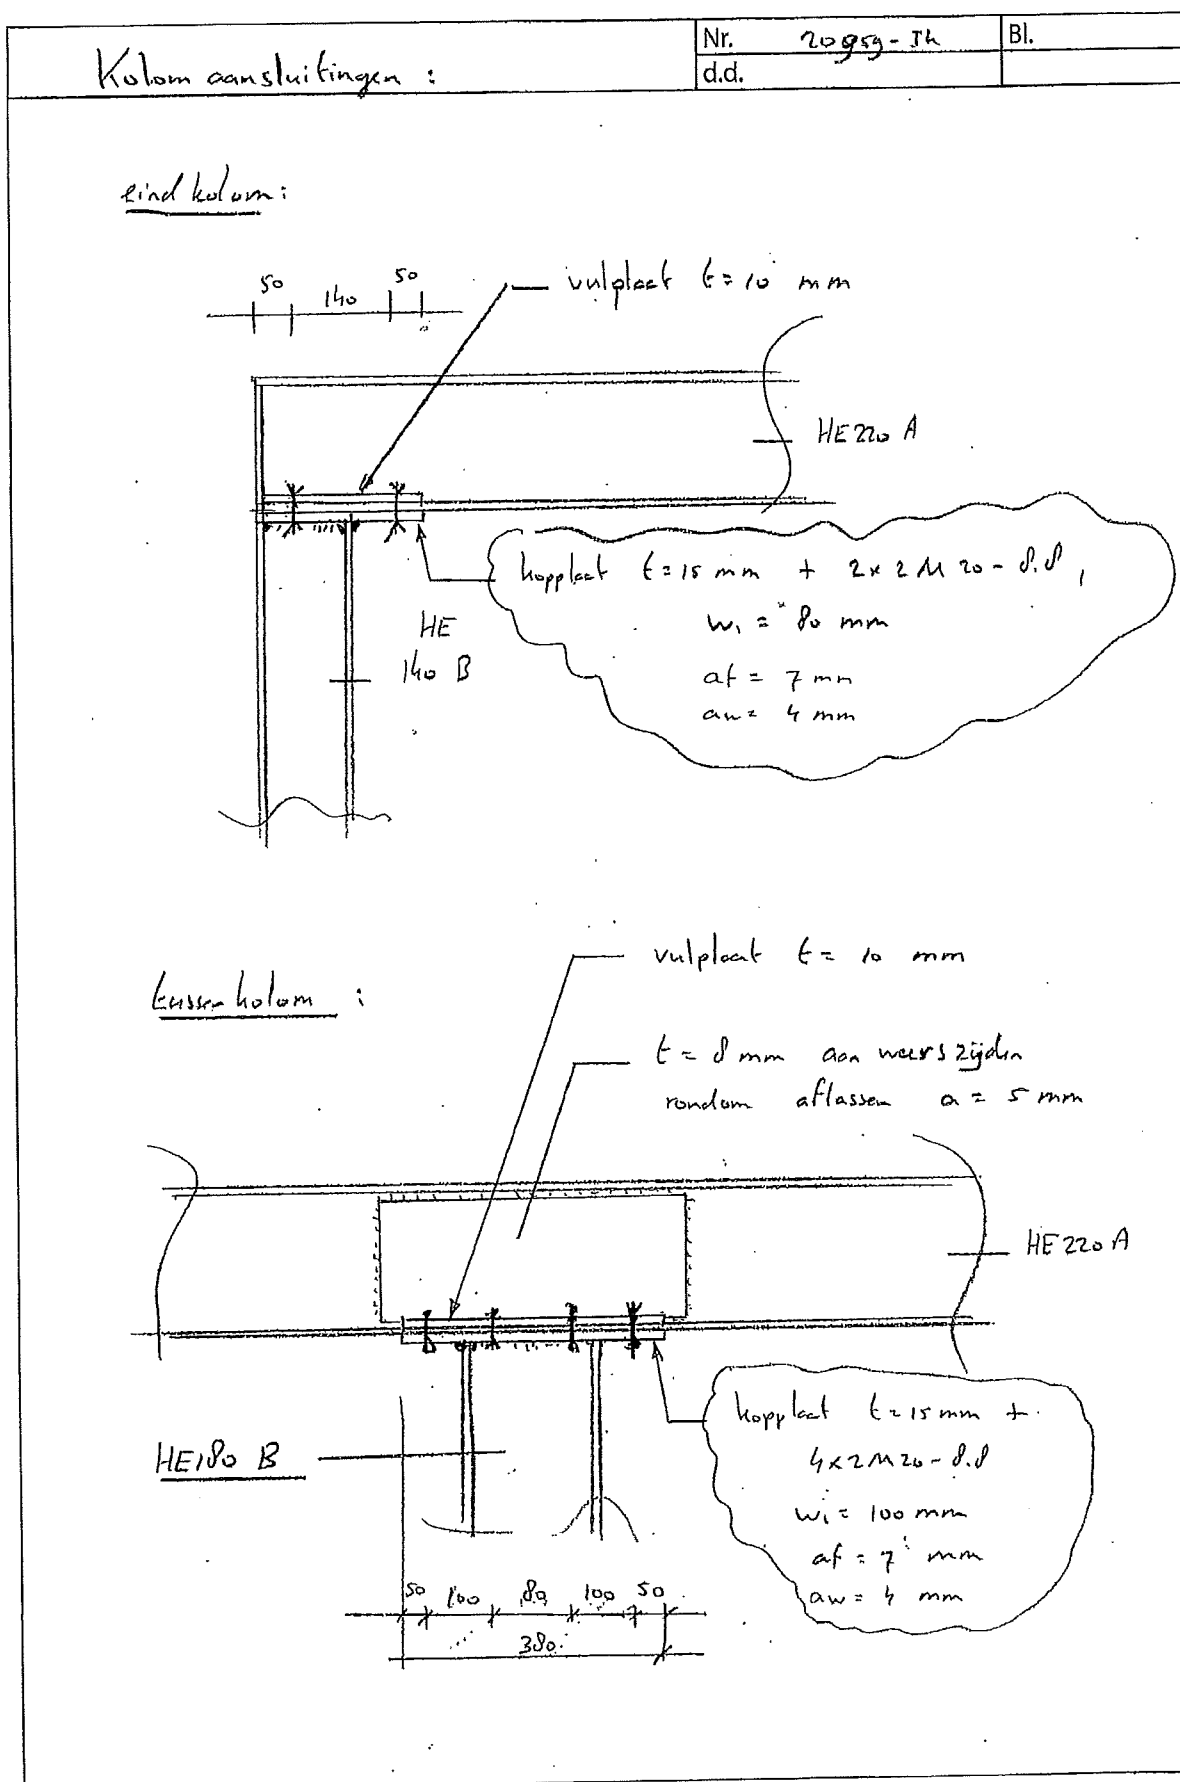 Kolom aansluitingen :
Nr. 20959-Ih
Bl.
d.d.
eind kolom:
50 140 50
vulplaat t=10 mm
HE220 A
kopplaat t=15 mm + 2x2M20-8.8,
w₁ = 80 mm
af = 7 mm
aw = 4 mm
HE
140 B
vulplaat t= 10 mm
tussenkolom :
t= 8 mm aan weerszijden
rondom aflassen a= 5 mm
HE220A
kopplaat t=15mm +
4x2M20-8.8
w₁= 100 mm
af= 7 mm
aw= 4 mm
HE180 B
50 100 80 100 50
380